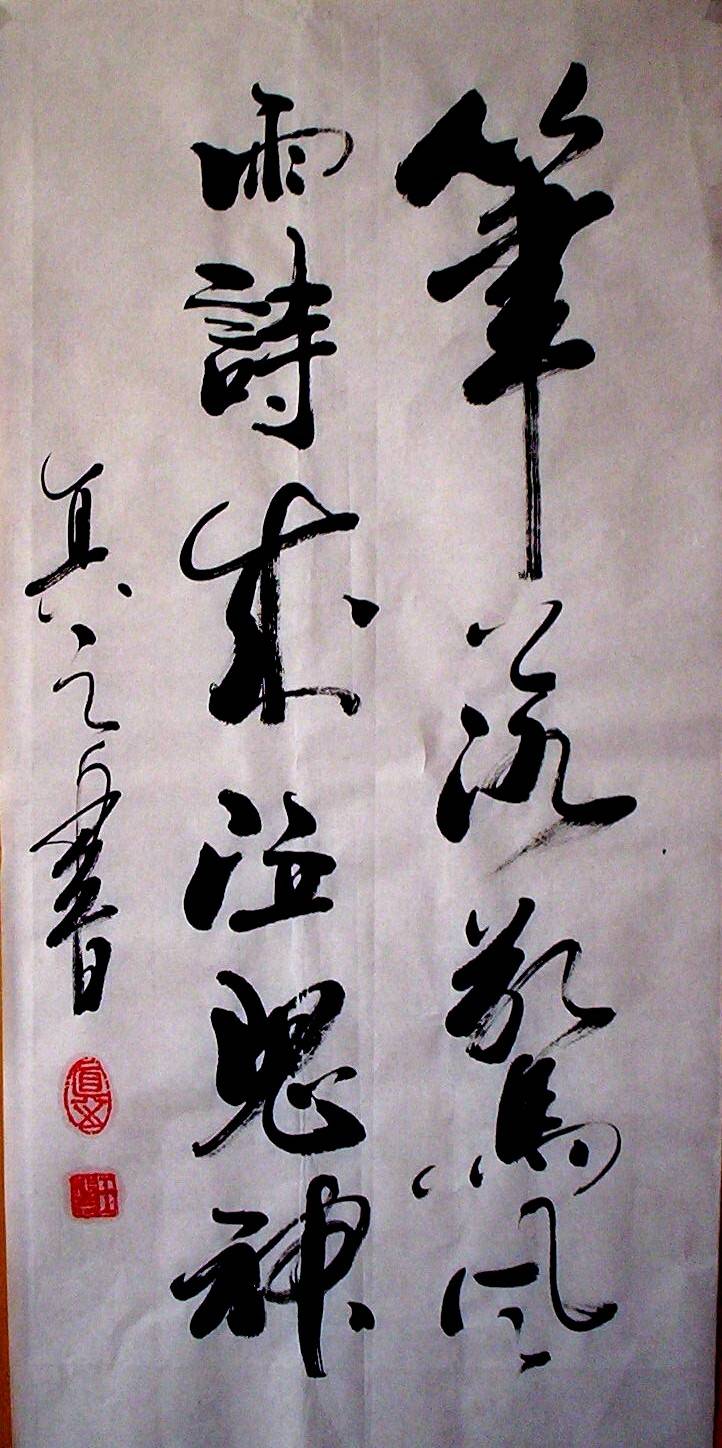 筆落驚風
雨詩成泣鬼神
真之書